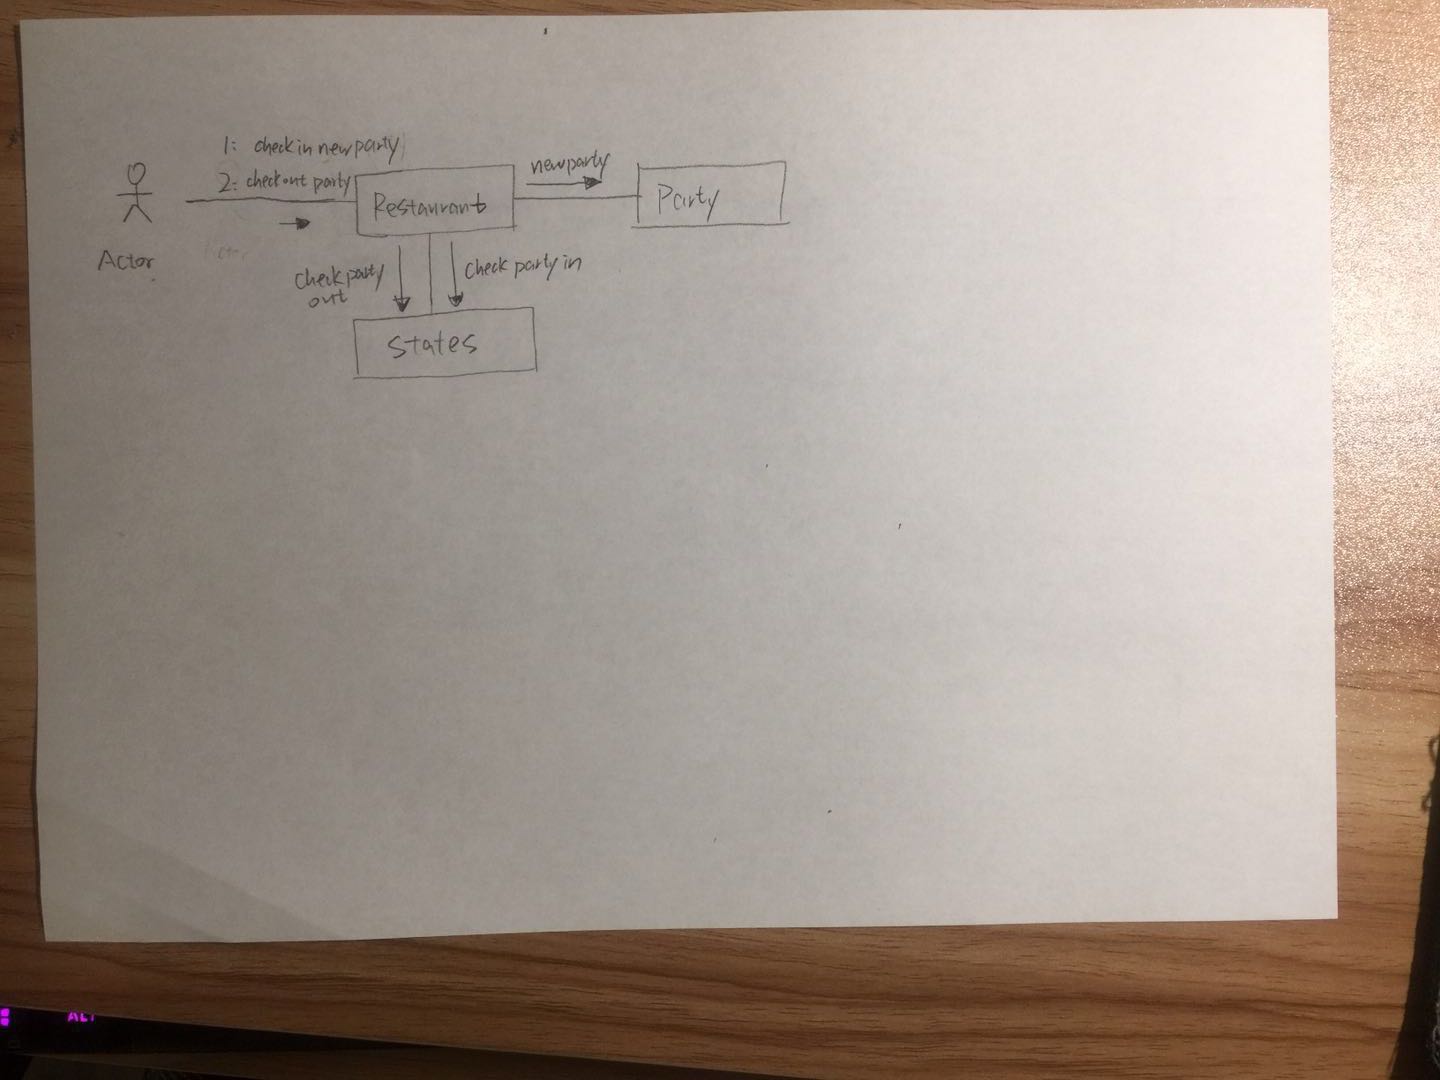 1: check in new party
2: check out party
Actor
Restaurant
new party
Party
check party
out
check party in
states
Actor
ALT